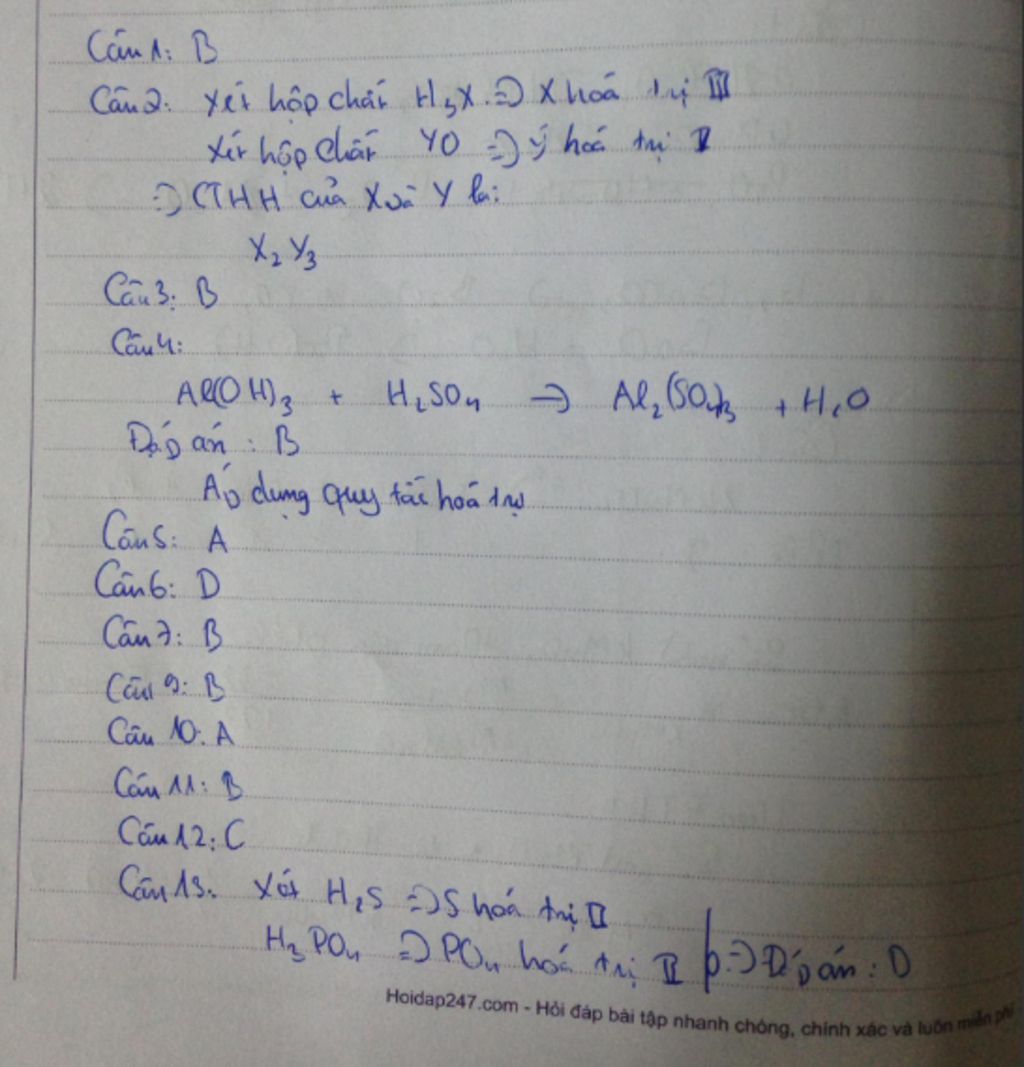 Câu 1: B
Câu 2: Xét hợp chất H₃X => X hoá trị III
Xét hợp chất YO => Y hoá trị II
=> CTHH của X và Y là:
X₂Y₃
Câu 3: B
Câu 4:
Al(OH)₃ + H₂SO₄ => Al₂(SO₄)₃ + H₂O
Đáp án : B
Áp dụng quy tắc hoá trị
Câu 5: A
Câu 6: D
Câu 7: B
Câu 9: B
Câu 10: A
Câu 11: B
Câu 12: C
Câu 13: Xét H₂S => S hoá trị II
H₃PO₄ => PO₄ hoá trị II => Đáp án : D
Hoidap247.com - Hỏi đáp bài tập nhanh chóng, chính xác và luôn miễn phí